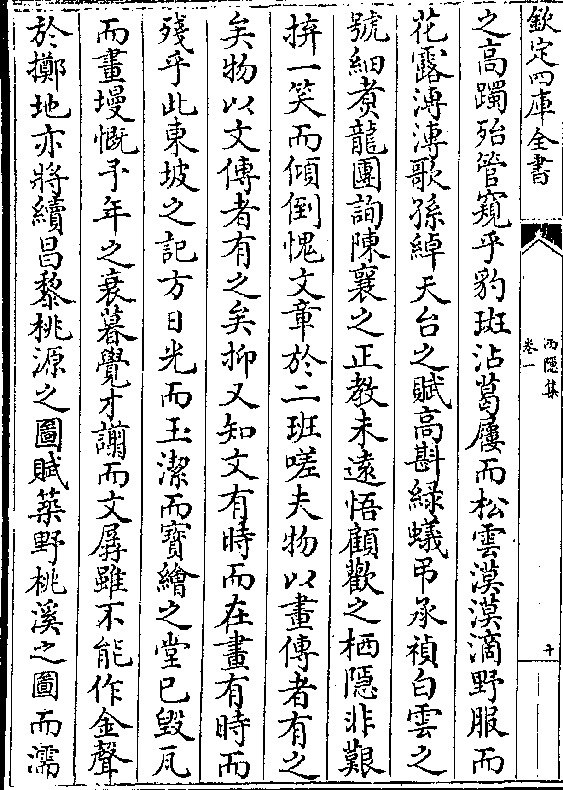 欽定四庫全書
西隱集
卷一
十
之高躅殆管窺乎豹斑沾葛屨而松雲漠漠滴野服而
花露漙漙歌孫綽天台之賦高斟綠蟻弔承禎白雲之
號細煑龍團詢陳襄之正教未遠悟顧歡之栖隱非艱
拚一笑而傾倒愧文章於二班嗟夫物以畫傳者有之
矣物以文傳者有之矣抑又知文有時而在畫有時而
殘乎此東坡之記方日光而玉潔而寶繪之堂已毀瓦
而畫墁慨予年之衰暮覺才譾而文孱雖不能作金聲
於擲地亦將續昌黎桃源之圖賦築野桃溪之圖而濡